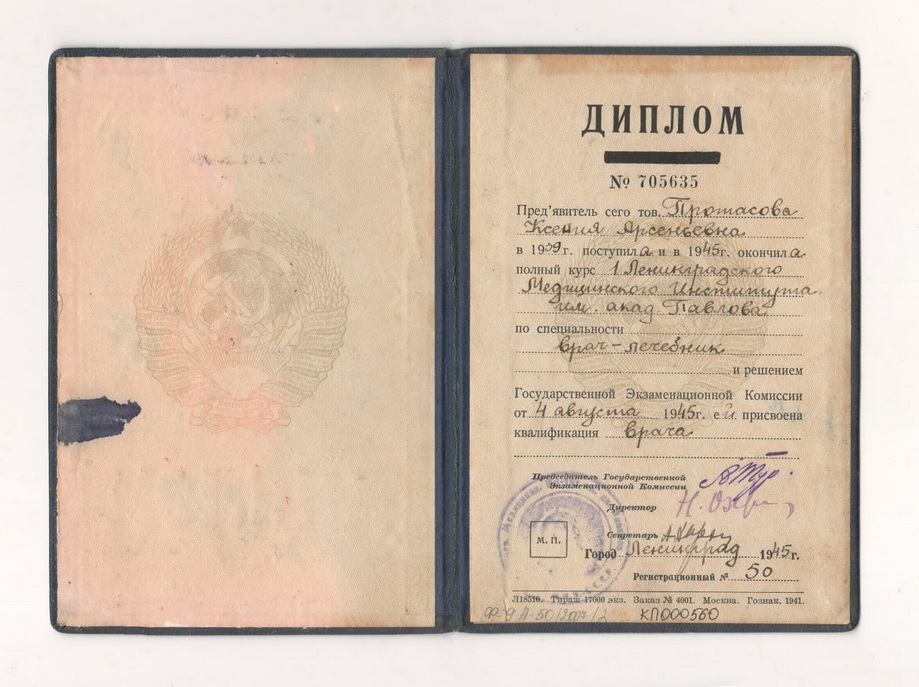 ДИПЛОМ
№ 705635
Пред'явитель сего тов. Протасова
Ксения Арсеньевна
в 1939 г. поступила и в 1945 г. окончила
полный курс 1 Ленинградского
Медицинского Института
им. акад. Павлова
по специальности
врач-лечебник
и решением
Государственной Экзаменационной Комиссии
от 4 августа 1945 г. ей присвоена
квалификация врача
Председатель Государственной
Экзаменационной Комиссии
Директор
Секретарь
М. П.
Город Ленинград 1945 г.
Регистрационный № 50
Л18510. Тираж 17000 экз. Заказ № 4001. Москва. Гознак. 1941.
КП000560